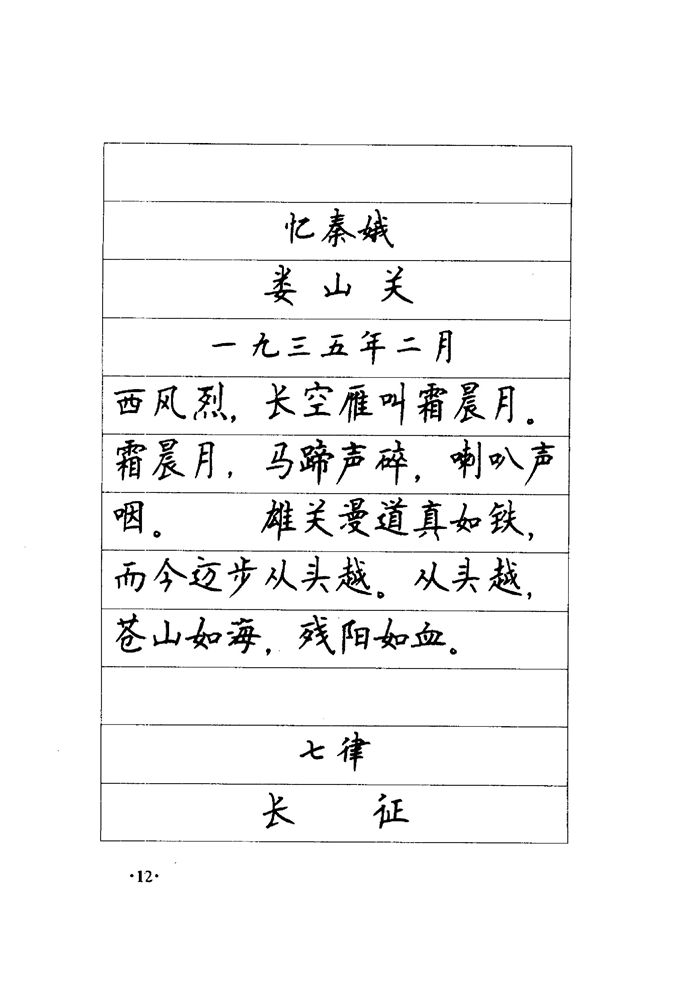 忆秦娥
娄山关
一九三五年二月
西风烈，长空雁叫霜晨月。
霜晨月，马蹄声碎，喇叭声
咽。 雄关漫道真如铁，
而今迈步从头越。从头越，
苍山如海，残阳如血。
七律
长 征
·12·